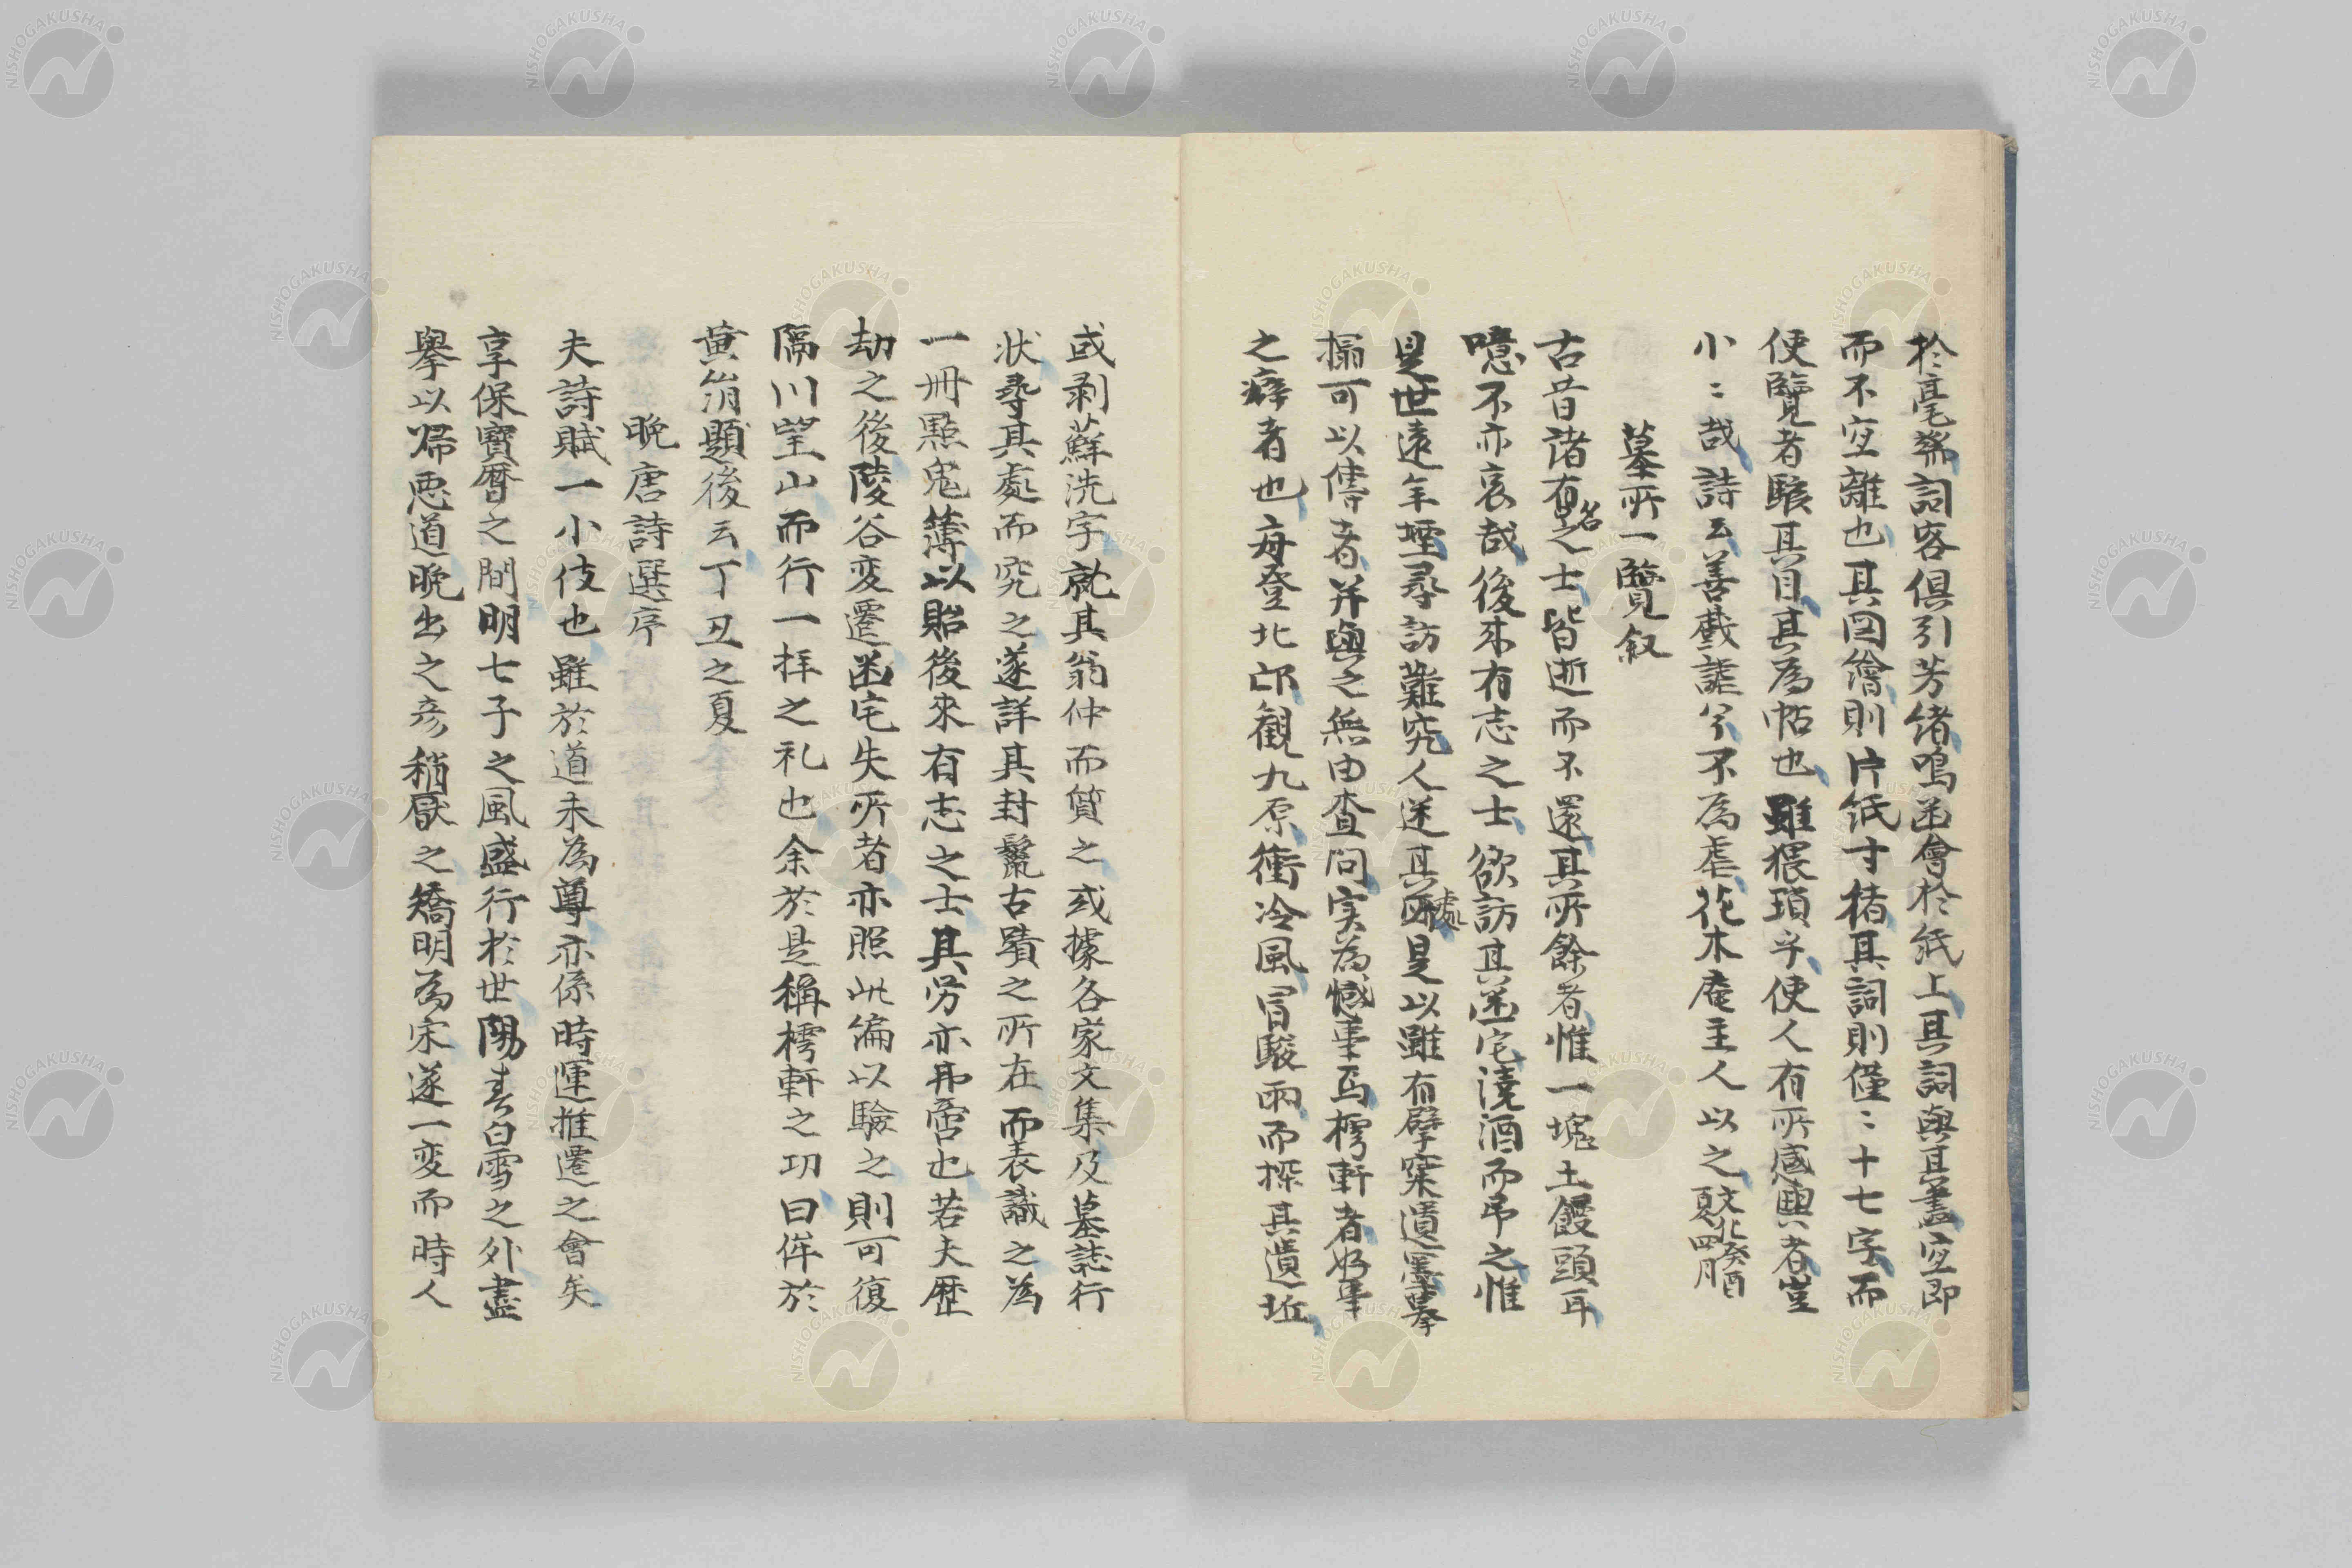 於毫端詞客俱引芳緒鳴函會於紙上其詞與其畫宜即
而不宜離也其図繪則片紙寸楮其詞則僅〻十七字而
使覽者駭其目甚為帖也雖猥瑣乎使人有所感興者豈
小〻哉詩云善戲謔兮不為虐花木庵主人以之文化癸酉夏四月
墓所一覽叙
古昔諸有名之士皆逝而不還其所餘者惟一塊土饅頭耳
噫不亦哀哉後来有志之士欲訪其函宅澆酒而弔之惟
是世遠年堙尋訪難究人迷其所處是以雖有擘窠遺墨摹
搨可以傳者并與之無由查問実為憾事焉樗軒者好事
之癖者也毎登北邙観九原衝冷風冒駿雨而探其遺坵
或剥蘚洗字就其翁仲而質之或據各家文集及墓誌行
状尋其處而究之遂詳其封鬣古蹟之所在而表識之為
一冊點鬼薄以貽後來有志之士其労亦弗啻也若夫歴
劫之後陵谷変遷函宅失所者亦照此編以驗之則可復
隔川望山而行一拝之礼也余於是稱樗軒之功曰侔於
黄絹題後云丁丑之夏
晩唐詩選序
夫詩賦一小伎也雖於道未為尊亦係時運推遷之會矣
享保寶暦之間明七子之風盛行於世陽春白雪之外盡
擧以帰悪道晩出之彦稍厭之矯明為宋遂一変而時人